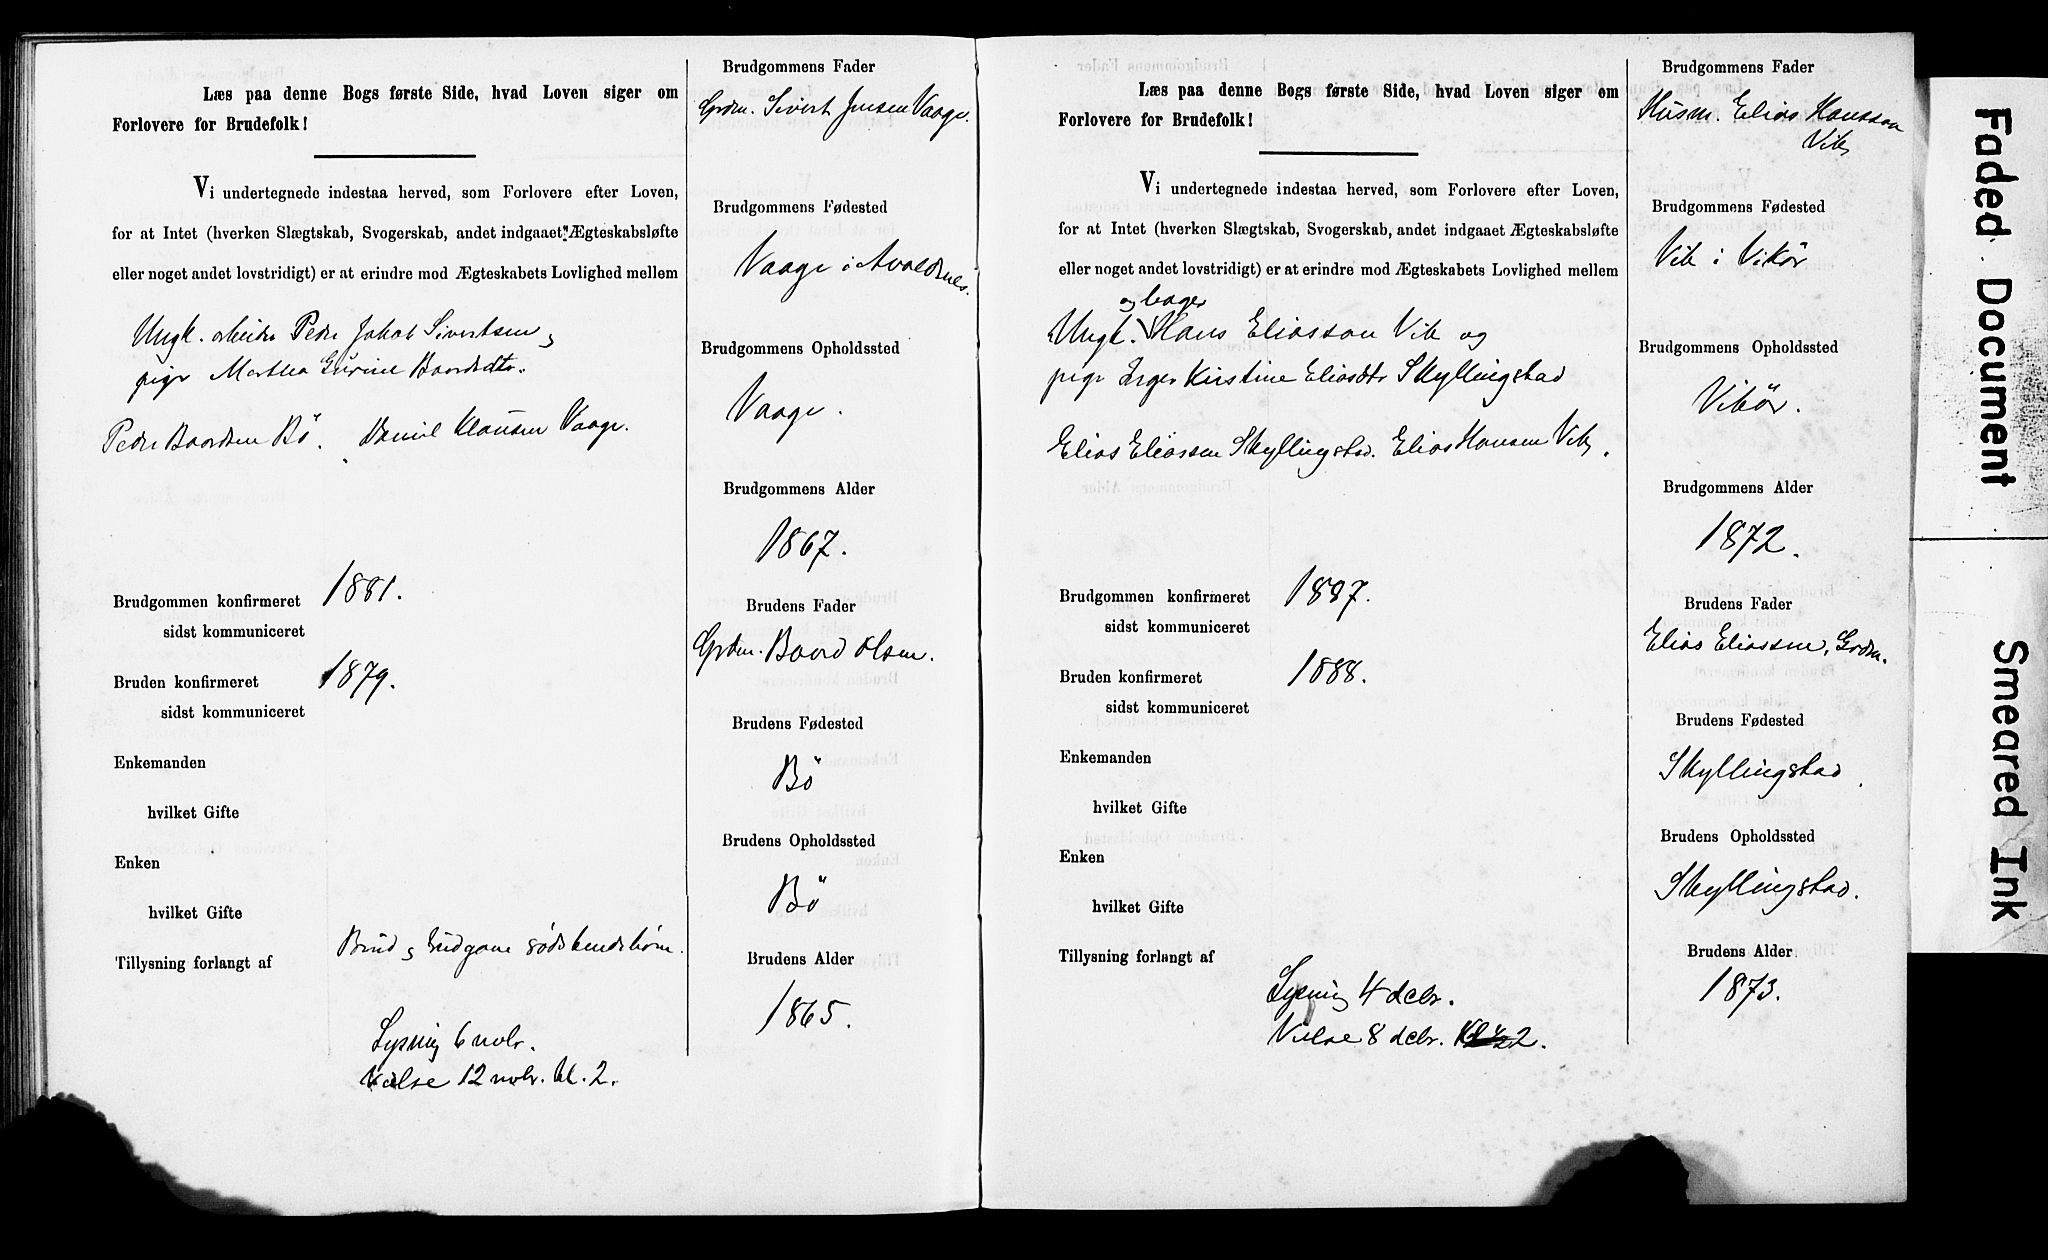 Læs paa denne Bogs første Side, hvad Loven siger om
Forlovere for Brudefolk!
Vi undertegnede indestaa herved, som Forlovere efter Loven,
for at Intet (hverken Slægtskab, Svogerskab, andet indgaaet Ægteskabsløfte
eller noget andet lovstridigt) er at erindre mod Ægteskabets Lovlighed mellem
Ungk. arbeider Peder Jakob Sivertsen og
pige Martha Gurine Baardsdtr.
Peder Baardsen Bö. Daniel Klausen Vaage.
Brudgommen konfirmeret 1881.
sidst kommuniceret
Bruden konfirmeret 1879.
sidst kommuniceret
Enkemanden
hvilket Gifte
Enken
hvilket Gifte
Tillysning forlangt af
Brud og brudgom södskendebörn.
Lysning 6 novbr.
Vielse 12 novbr. kl. 2.
Brudgommens Fader
Grdm. Sivert Jensen Vaage.
Brudgommens Fødested
Vaage i Avaldsnes.
Brudgommens Opholdssted
Vaage.
Brudgommens Alder
1867.
Brudens Fader
Grdm. Baard Olsen.
Brudens Fødested
Bö
Brudens Opholdssted
Bö
Brudens Alder
1865.
Læs paa denne Bogs første Side, hvad Loven siger om
Forlovere for Brudefolk!
Vi undertegnede indestaa herved, som Forlovere efter Loven,
for at Intet (hverken Slægtskab, Svogerskab, andet indgaaet Ægteskabsløfte
eller noget andet lovstridigt) er at erindre mod Ægteskabets Lovlighed mellem
og bager
Ungk. Hans Eliassøn Vik og
pige Inger Kirstine Eliasdtr Skyllingstad
Elias Eliassen Skyllingstad. Elias Hansen Vik.
Brudgommen konfirmeret 1887.
sidst kommuniceret
Bruden konfirmeret 1888.
sidst kommuniceret
Enkemanden
hvilket Gifte
Enken
hvilket Gifte
Tillysning forlangt af
Lysning 4 decbr.
Vielse 8 decbr. 2.
Brudgommens Fader
Husm. Elias Hanssøn
Vik
Brudgommens Fødested
Vik i Vikör
Brudgommens Opholdssted
Vikör.
Brudgommens Alder
1872.
Brudens Fader
Elias Eliassen, Grdm.
Brudens Fødested
Skyllingstad.
Brudens Opholdssted
Skyllingstad.
Brudens Alder
1873.
Faded Document
Smeared Ink